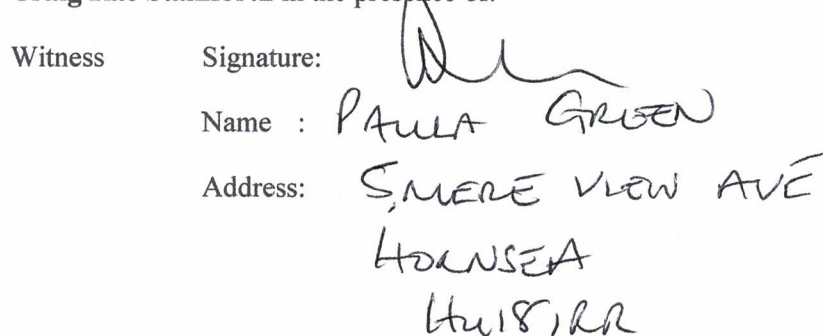 in the presence of:
Witness Signature:
Name : PAULA GREEN
Address: 5, MERE VIEW AVE
HORNSEA
HU18 1RR